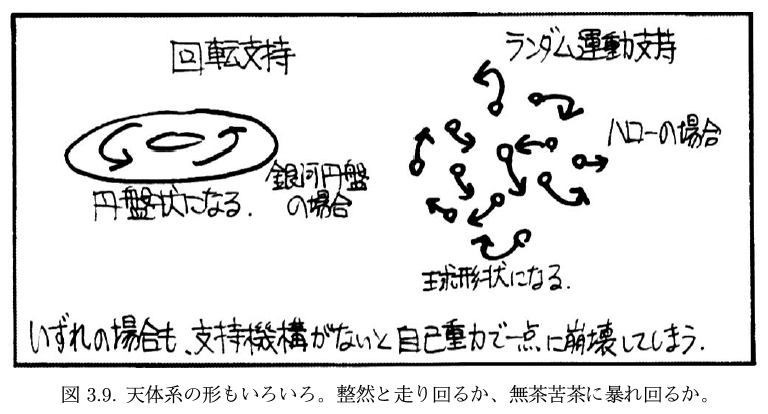 回転支持
円盤状になる.
銀河円盤
の場合
ランダム運動支持
ハローの場合
球形状になる.
いずれの場合も、支持機構がないと自己重力で一点に崩壊してしまう.
図 3.9. 天体系の形もいろいろ。整然と走り回るか、無茶苦茶に暴れ回るか。